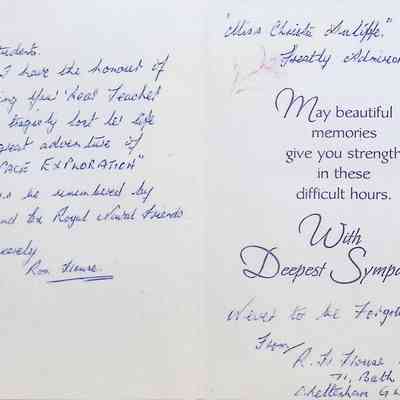 tudents.
I have the honour of
ing your "Real Teacher
tragicly lost he' life
great adventure of
PACE EXPLORATION"
be remembered by
nd Ex Royal Naval Friends
cerely
Ron House.
"Miss Christa Auliffe."
Greatly Admired
May beautiful
memories
give you strength
in these
difficult hours.
With
Deepest Sympa
Never to be Forgot
From
R. House
71, Bath
Cheltenham G